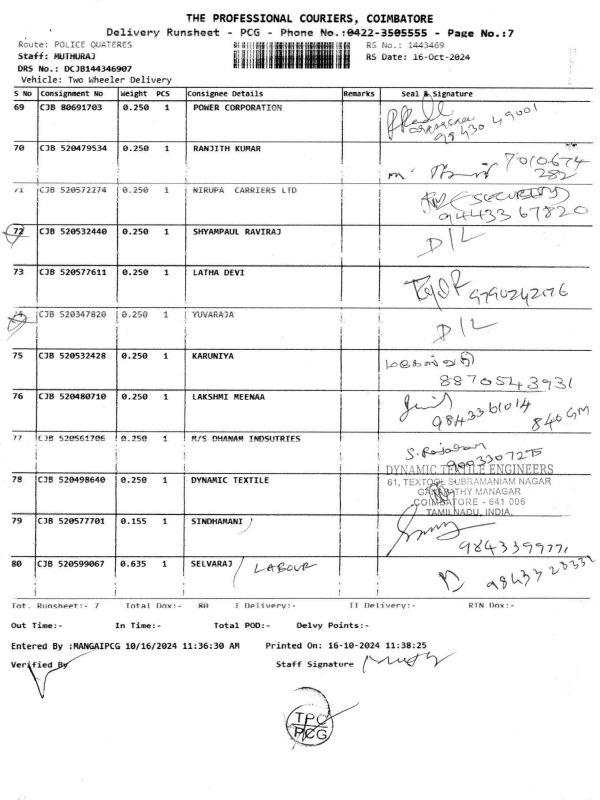 THE PROFESSIONAL COURIERS, COIMBATORE
Delivery Runsheet - PCG - Phone No.:0422-3505555 - Page No.:7
Route: POLICE QUATERES RS No.: 1443469
Staff: MUTHURAJ RS Date: 16-Oct-2024
DRS No.: DCJB144346907
Vehicle: Two Wheeler Delivery
S No Consignment No Weight PCS Consignee Details Remarks Seal & Signature
69 CJB 80691703 0.250 1 POWER CORPORATION
98430 49001
70 CJB 520479534 0.250 1 RANJITH KUMAR
7010674
282
71 CJB 520572274 0.250 1 NIRUPA CARRIERS LTD
(SECURITY)
94433 67820
72 CJB 532440 0.250 1 SHYAMPAUL RAVIRAJ D/L
73 CJB 520577611 0.250 1 LATHA DEVI
9790242176
74 CJB 520347820 0.250 1 YUVARAJA D/L
75 CJB 520532428 0.250 1 KARUNIYA
8870543931
76 CJB 520480710 0.250 1 LAKSHMI MEENAA
9843361014
840GM
77 CJB 520561706 0.250 1 M/S DHANAM INDSUTRIES
S. Rajagam
9003307275
DYNAMIC TEXTILE ENGINEERS
78 CJB 520498640 0.250 1 DYNAMIC TEXTILE 61, TEXTOOL SUBRAMANIAM NAGAR
GANAPATHY MANAGAR
COIMBATORE - 641 006
TAMILNADU, INDIA.
79 CJB 520577701 0.155 1 SINDHAMANI
80 CJB 520599067 0.635 1 SELVARAJ / LABOUR
Tot. Runsheet:- 7 Total Dox:- 80 I Delivery:- II Delivery:- RTN Dox:-
Out Time:- In Time:- Total POD:- Delvy Points:-
Entered By :MANGAIPCG 10/16/2024 11:36:30 AM Printed On: 16-10-2024 11:38:25
Verified By Staff Signature
TPC
PCG